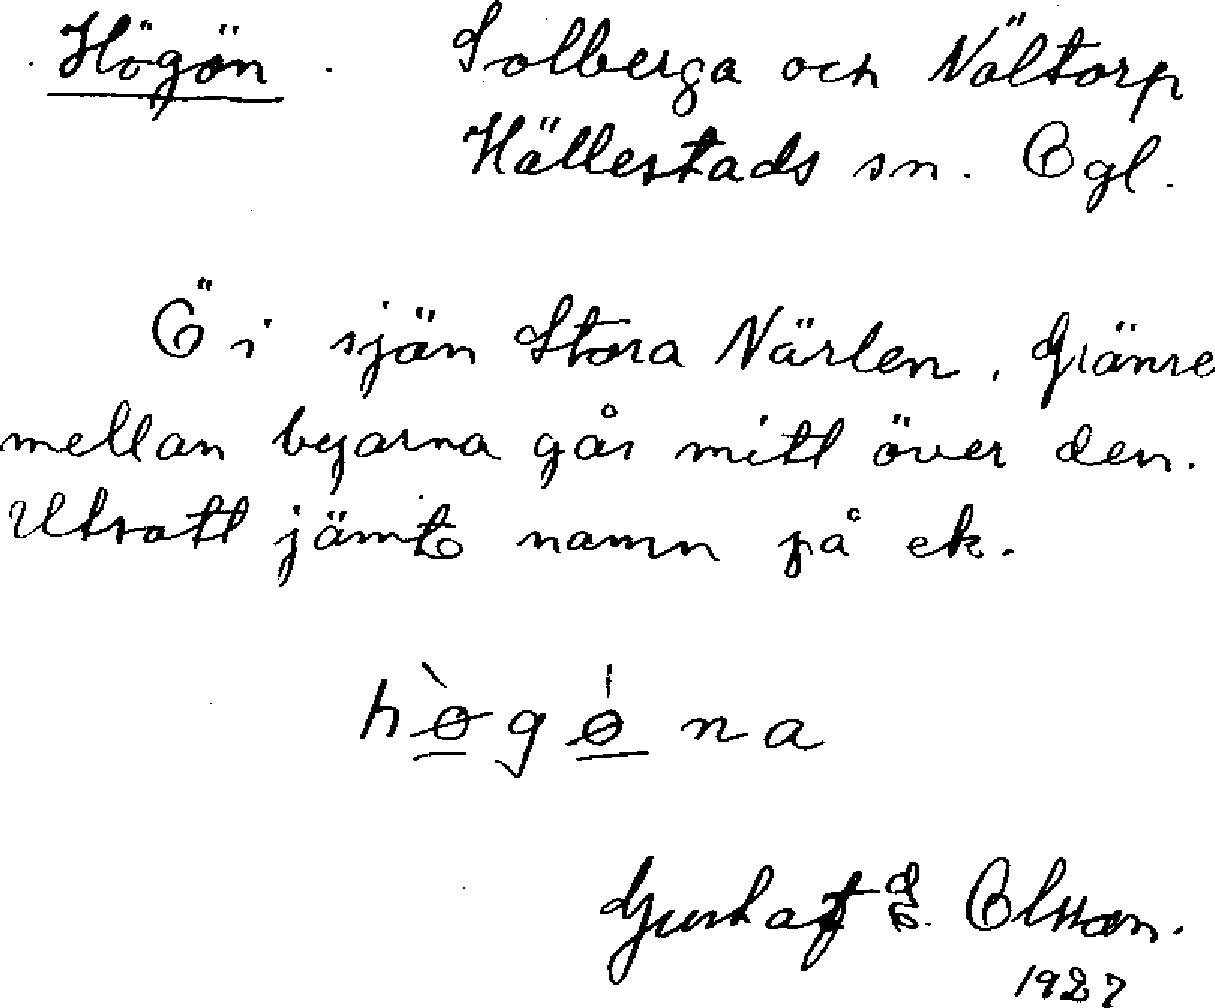 Högön. Solberga och Nältorp
Hällestads sn. Ogl.
Ö i sjön Stora Närlen. Gränse
mellan byarna går mitt över den.
Utsatt jämte namn på ek.
hø̱̀gǿ̱na
Gustaf E. Olsson.
1927